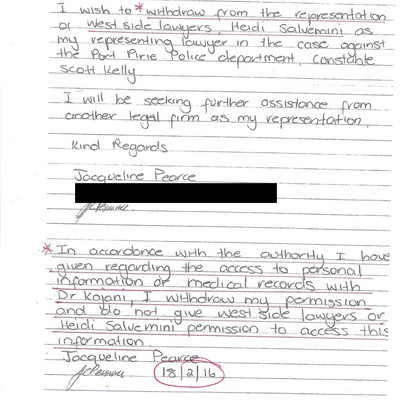 I wish to *withdraw from the representation
of West side lawyers, Heidi Salvemini as
my representing lawyer in the case against
the Port Pirie Police department, constable
Scott Kelly
I will be seeking further assistance from
another legal firm as my representation.
Kind Regards
Jacqueline Pearce
* In accordance with the authority I have
given regarding the access to personal
information or medical records with
Dr Kajani, I withdraw my permission
and do not give west side lawyers or
Heidi Salvemini permission to access this
information.
Jacqueline Pearce
18/2/16